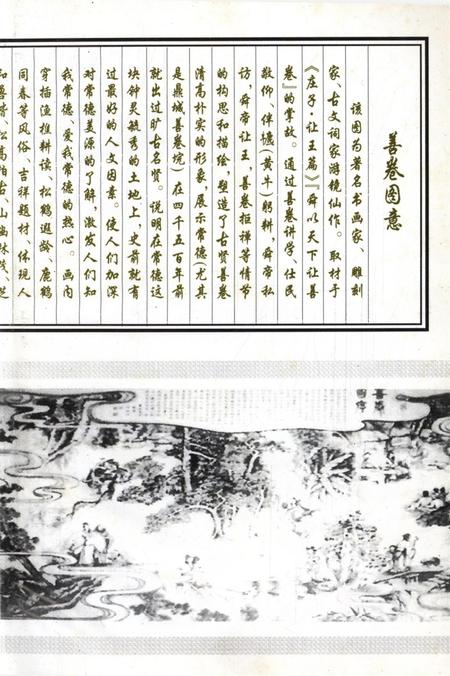 善卷图意
该图为著名书画家、雕刻
家、古文词家游镜仙作。取材于
《庄子·让王篇》『舜以天下让善
卷』的掌故。通过善卷讲学、仕民
敬仰、伴犪(黄牛)躬耕，舜帝私
访，舜帝让王，善卷拒禅等情节
的构思和描绘，塑造了古贤善卷
清高朴实的形象，展示常德(尤其
是鼎城善卷垸)在四千五百年前
就出过旷古名贤。说明在常德这
块钟灵毓秀的土地上，史前就有
过最好的人文因素。使人们加深
对常德美源的了解，激发人们知
我常德、爱我常德的热心。画内
穿插渔樵耕读、松鹤遐龄、鹿鹤
同春等风俗、吉祥题材、体现人
善卷